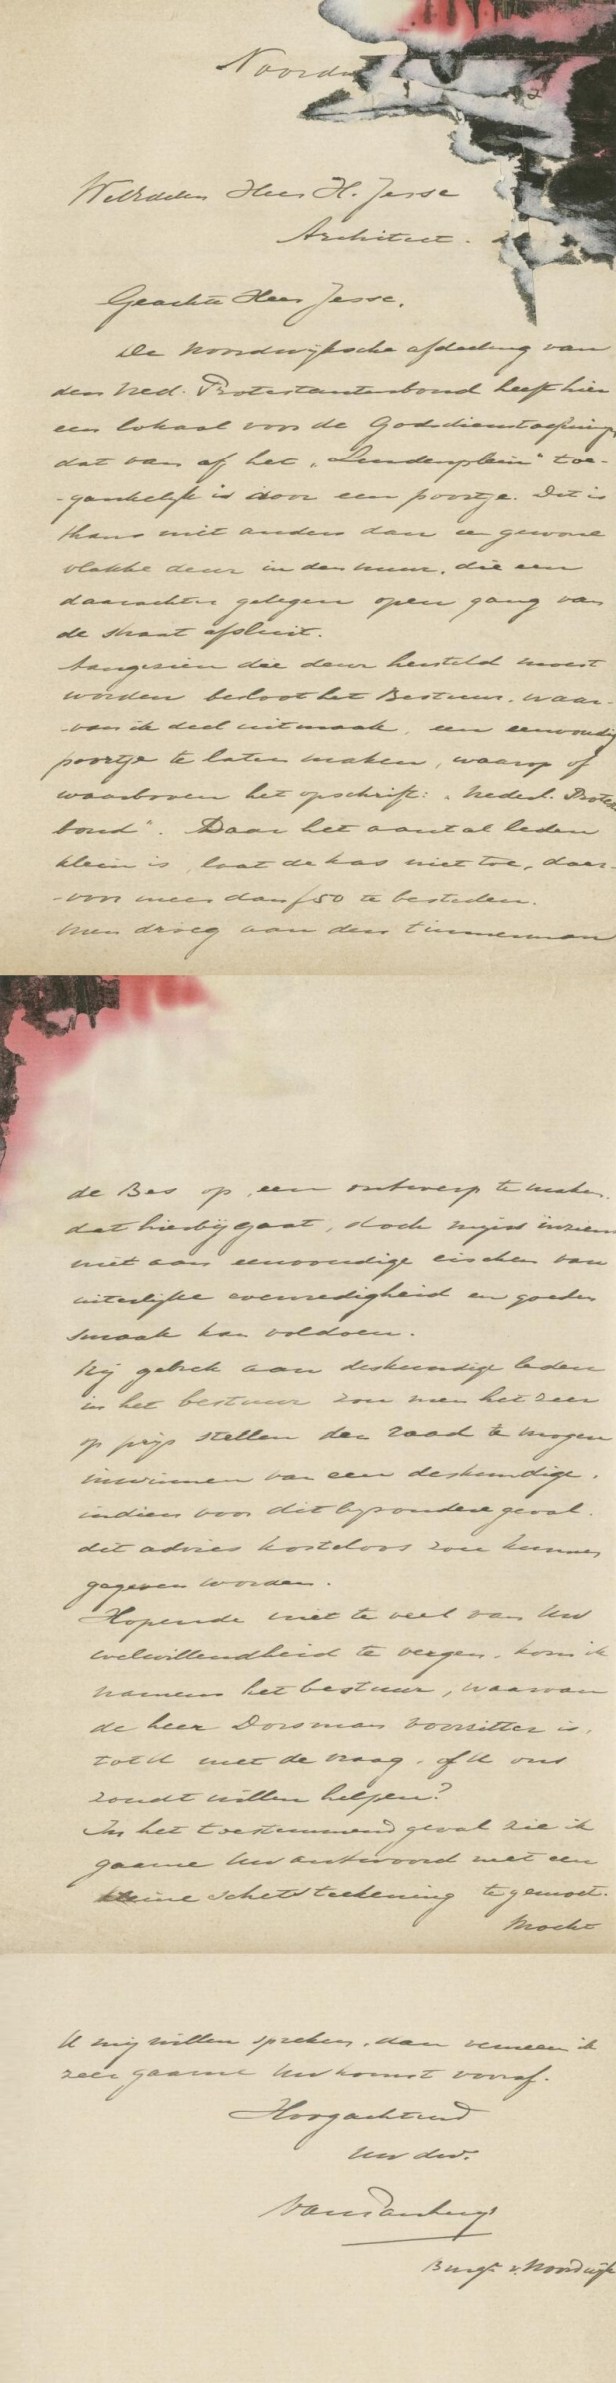 Noordw
WelEdelen Heer H. Jesse
Architect.
Geachte Heer Jesse,
De Noordwijksche afdeeling van
den Ned. Protestantenbond heeft hier
een lokaal voor de Godsdienstoefening,
dat van af het "Lindenplein" toe-
-gankelijk is door een poortje. Dit is
thans niet anders dan een gewone
vlakke deur in den muur, die een
daarachter gelegen open gang van
de straat afsluit.
Aangezien die deur hersteld moest
worden besloot het Bestuur, waar-
-van ik deel uitmaak, een eenvoudig
poortje te laten maken, waarop of
waarboven het opschrift: "Nederl. Protest
bond". Daar het aantal leden
klein is, laat de kas niet toe, daar-
-voor meer dan f 50 te besteden.
Men droeg aan den timmerman
de Bes op, een ontwerp te maken,
dat hierbij gaat, doch mijns inziens
niet aan eenvoudige eischen van
uiterlijke evenredigheid en goeden
smaak kan voldoen.
Bij gebrek aan deskundige leden
in het bestuur zou men het zeer
op prijs stellen den raad te mogen
inwinnen van een deskundige,
indien voor dit byzondere geval
dit advies kosteloos zou kunnen
gegeven worden.
Hopende niet te veel van Uw
welwillendheid te vergen, kom ik
namens het bestuur, waarvan
de heer Dorsman voorzitter is,
tot U met de vraag, of U ons
zoudt willen helpen?
In het toestemmend geval zie ik
gaarne Uw antwoord met een
kleine schetsteekening te gemoet.
Mocht
U mij willen spreken, dan verneem ik
zeer gaarne Uw komst vooraf.
Hoogachtend
Uw dw.
Burgr v. Noordwijk